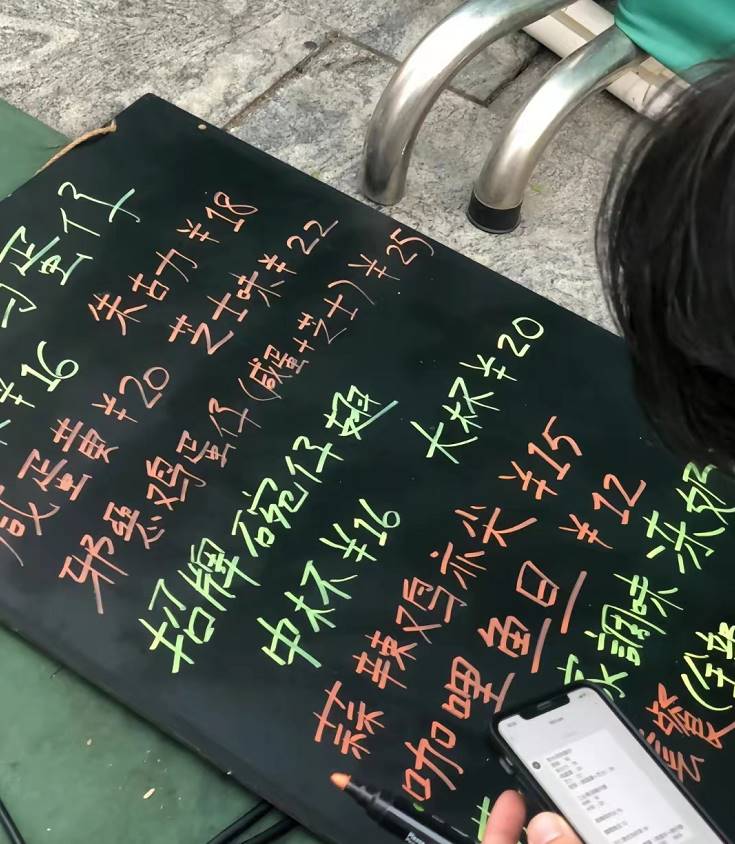 蛋仔
¥16 朱古力 ¥18
咸蛋黄 ¥20 芝士味 ¥22
邪恶鸡蛋仔(咸蛋+芝士) ¥25
招牌碗仔翅
中杯 ¥16 大杯 ¥20
蒜辣鸡亦尖 ¥15
咖哩鱼旦 ¥12
調味 冻奶